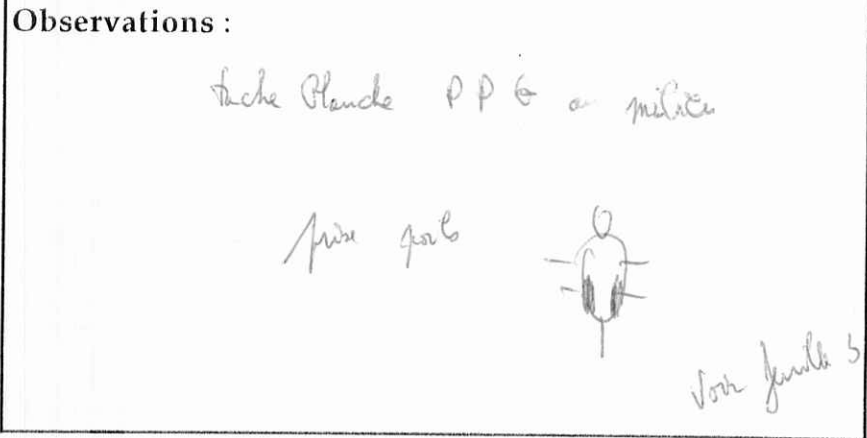 Observations :
tache blanche P P G au milieu
prise poils
Voir feuille 3